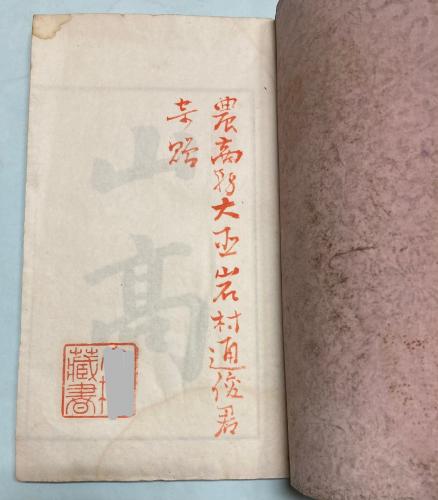 農商務大臣岩村通俊君
寄贈
山高
藏書